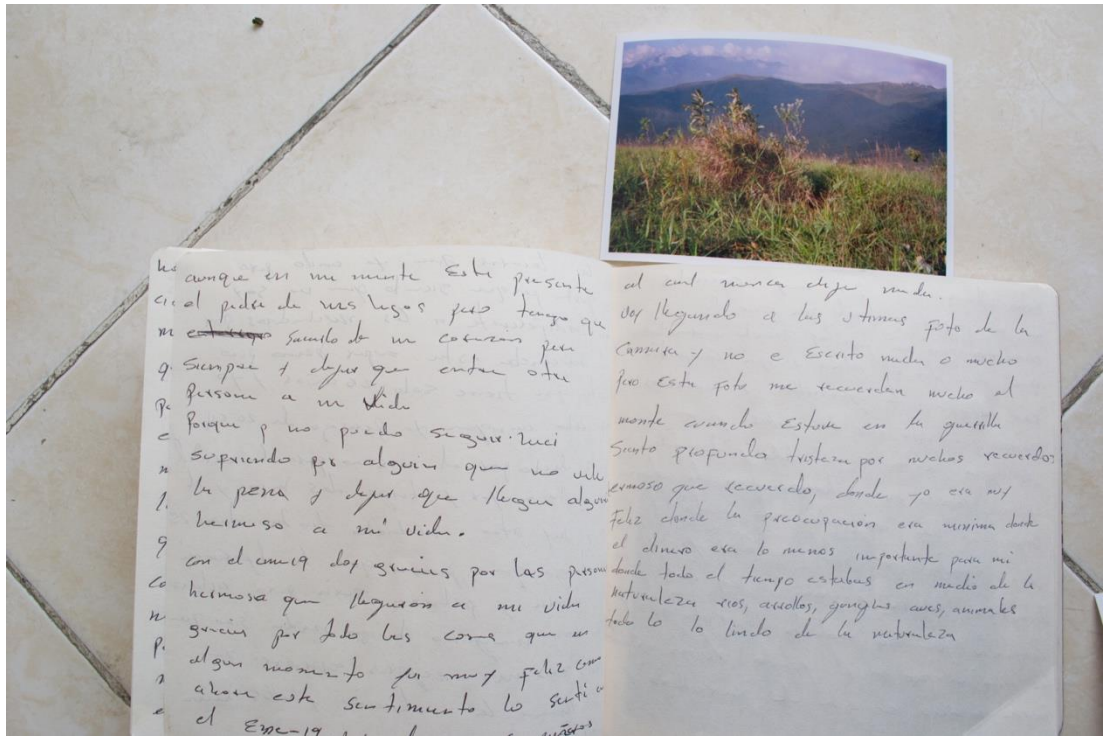 aunque en mi mente esta presente
al padre de mis hijos pero tengo que
sacarlo de mi corazon para
siempre y dejar que entre otra
persona a mi vida
Porque y no puedo seguir
supriendo por alguien que no vale
la pena y dejar que llegen algun
hermoso a mi vida.
con el doy gracias por las person
hermosa que llegaron a mi vida
gracias por todo las cosas que en
algun momento fui muy feliz como
ahora este sentimiento lo senti
el
al cual nunca deje nada.
voy llegando a las ultimas foto de la
Cammara y no e Escrito nada o mucho
Pero esta foto me recuerdan mucho al
monte cuando Estuve en la guerrilla
Siento profunda tristeza por muchos recuerdos
ermoso que recuerdo, donde yo era muy
Feliz donde la preocupación era minima donde
el dinero era lo menos importante para mi
donde todo el tiempo estabas en medio de la
naturaleza rios, arrollos, aves, animales
todo lo lo lindo de la naturaleza